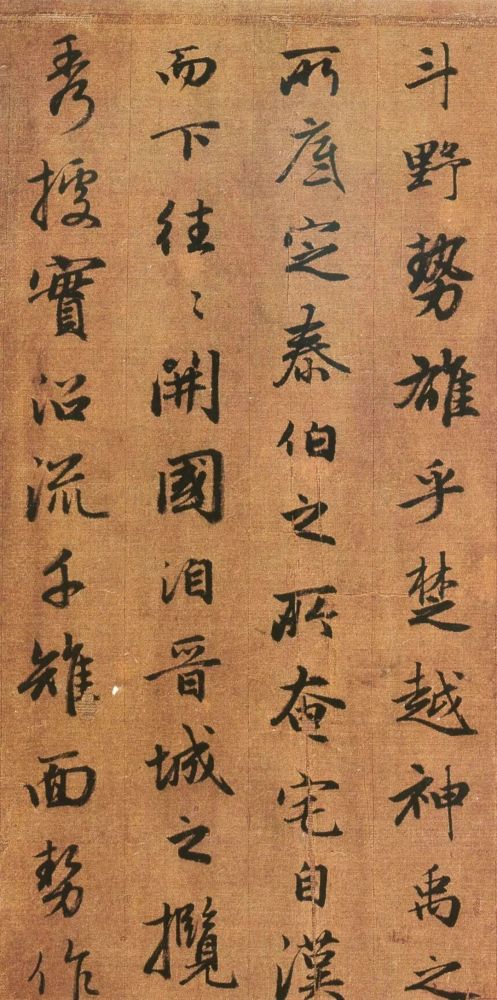 斗野勢雄乎楚越神禹之
所底定泰伯之所奄宅自漢
而下往〻開國洎晉城之攬
秀擾實沿流千雉面勢作